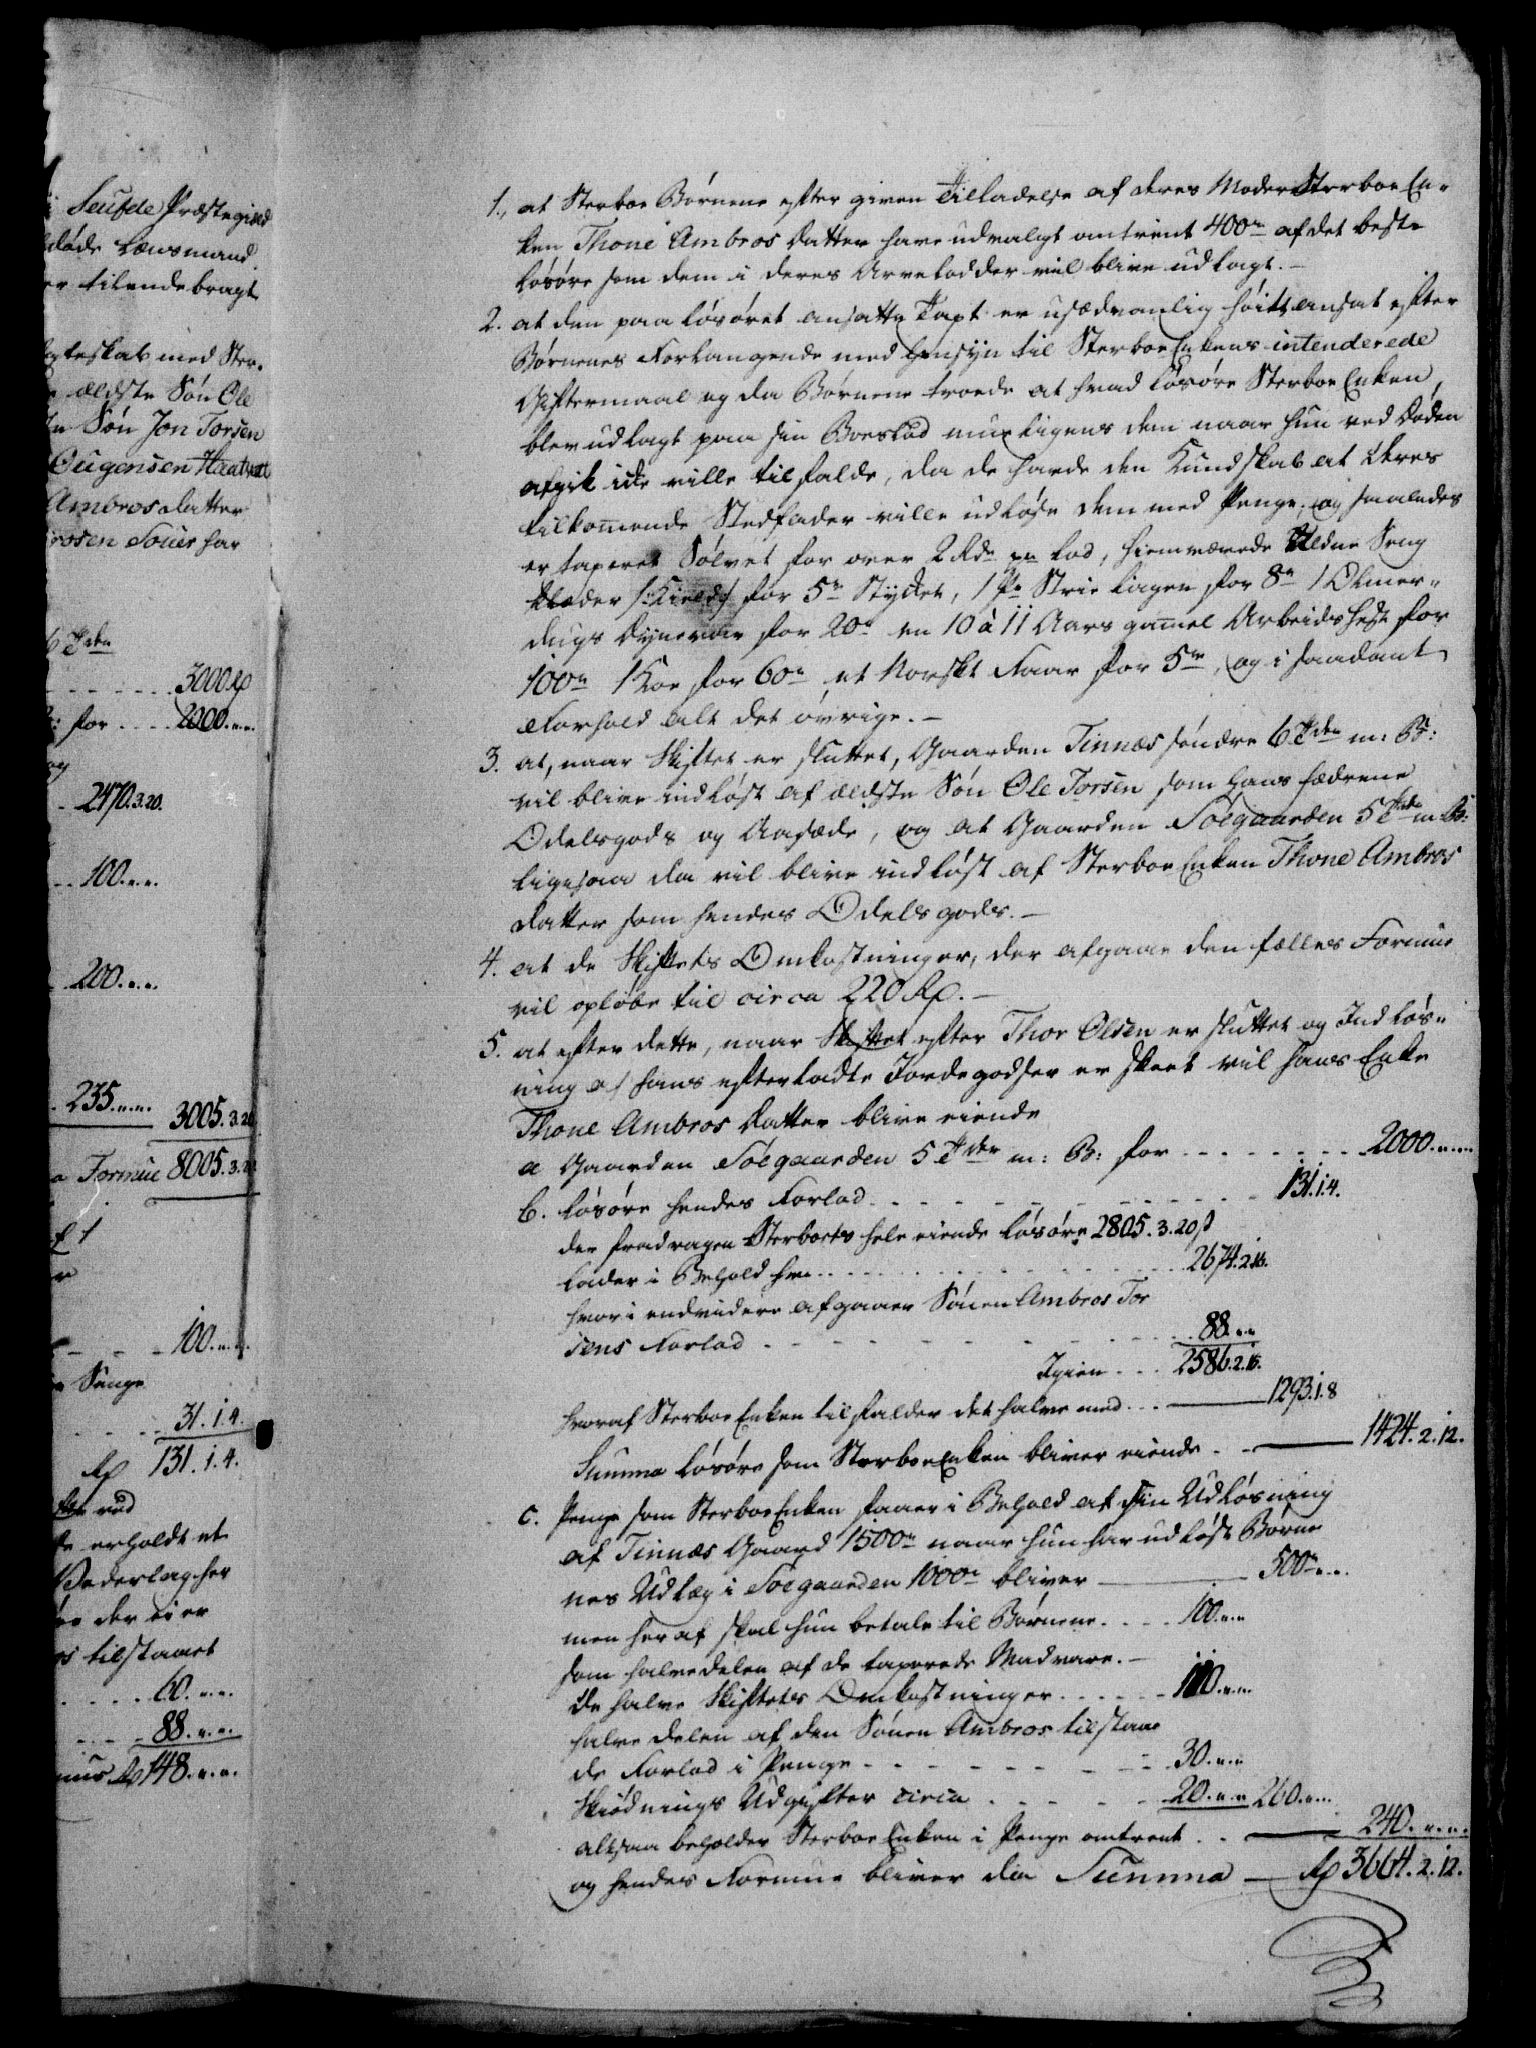 i Seufde Præstegield
døde Lænsmand
er tilendebragt
gteskab med Ster-
e ældste Søn Ole
Søn Jon Torsen
Eugensen Haatvet
Ambrosdatter
rosen Soues har
6 Tdr
3000 Rp
: for 2000.„.„.
og
2470.3.20.
100.„.„.
200.„.„.
235.„.„. 3005.3.20
Formue 8005.3.20
100.„.„.
e Senge
31.1.4.
Rp 131.1.4.
ved
erholdt et
Vederlag her
der ei er
tilstaaet
60.„.„.
88.„.„.
Rp 148.„.„.
1., at Sterboe Børnene efter given Tilladelse af deres Moder Sterboe En-
ken Thone Ambros Datter have udvalgt omtrent 400rd af det beste
Løsøre som dem i deres Arvelodder vil blive udlagt.
2. at den paa Løsøret ansatte Taxt er usædvanlig høit ansat efter
Børnenes Forlangende med Hensyn til Sterboe Enkens intenderede
Giftermaal og da Børnene troede at hvad Løsøre Sterboe Enken,
blev udlagt paa sin Boeslod muligens dem naar hun ved Døden
afgik icke ville tilfalde, da de havde den Kundskab at deres
tilkomende Stedfader ville udløse dem med Penge, og saaledes
er taxeret Sølvet for over 2 Rdr pr Lod, hiemvævede Uldne Seng
klæder /:Kield:/ for 5rd Stycket, 1 Pr Strie Lagen for 8rd 1 Olmer-
dugs Dynevaar for 20rd en 10 à 11 Aars gamel Arbeidshest for
100rd 1 Koe for 60rd et Norskt Faar for 5rd, og i saadant
Forhold alt det øvrige.
3. at, naar Skiftet er sluttet, Gaarden Tinnæs søndre 6 Tdr m: B:
vil blive indløst af ældste Søn Ole Torsen som hans fædrene
Odelsgods og Aasæde, og at Gaarden Søegaarden 5 Tdr m: B:
ligesaa da vil blive indløst af Sterboe Enken Thone Ambros
Datter som hendes Odels gods.
4. at de Skiftets Omkostninger, der afgaae den fælles Formue
vil opløbe til circa 220 Rp.
5. at efter dette, naar Skiftet efter Thor Olsen er sluttet og Indløs-
ning af hans efterladte Jordegodser er skeet vil hans Enke
Thone Ambros Datter blive eiende
a Gaarden Søegaarden 5 Tdr m: B: for 2000.„.„.
b. Løsøre hendes Forlod 131.1.4.
der fradragen Sterboets hele eiende Løsøre 2805.3.20 s
lader i Behold her 2674.2.16.
hvori endvidere afgaaer Sønen Ambros Tor
sens Forlod 88.„.„
Igien 2586.2.16.
hvoraf Sterboe Enken tilfalder det halve med 1293.1.8
Summa Løsøre som Sterboe Enken bliver eiende 1424.2.12.
c. Penge som Sterboe Enken faaer i Behold af sin Udløsning
af Tinnæs Gaard 1500rd naar hun har udløst Børne
nes Udlæg i Søegaarden 1000rd bliver 500.„.„.
men heraf skal hun betale til Børnene 100.„.„
som halvedelen af de taxerede Madvare.
de halve Skiftets Omkostninger 110.„.„
halve delen af den Sønen Ambros tilstaae
de Forlod i Penge 30.„.„
Skiødnings Udgifter circa 20.„.„ 260.„.„.
altsaa beholder Sterboe Enken i Penge omtrent 240.„.„.
og hendes Formue bliver da Summa Rp 3664.2.12.